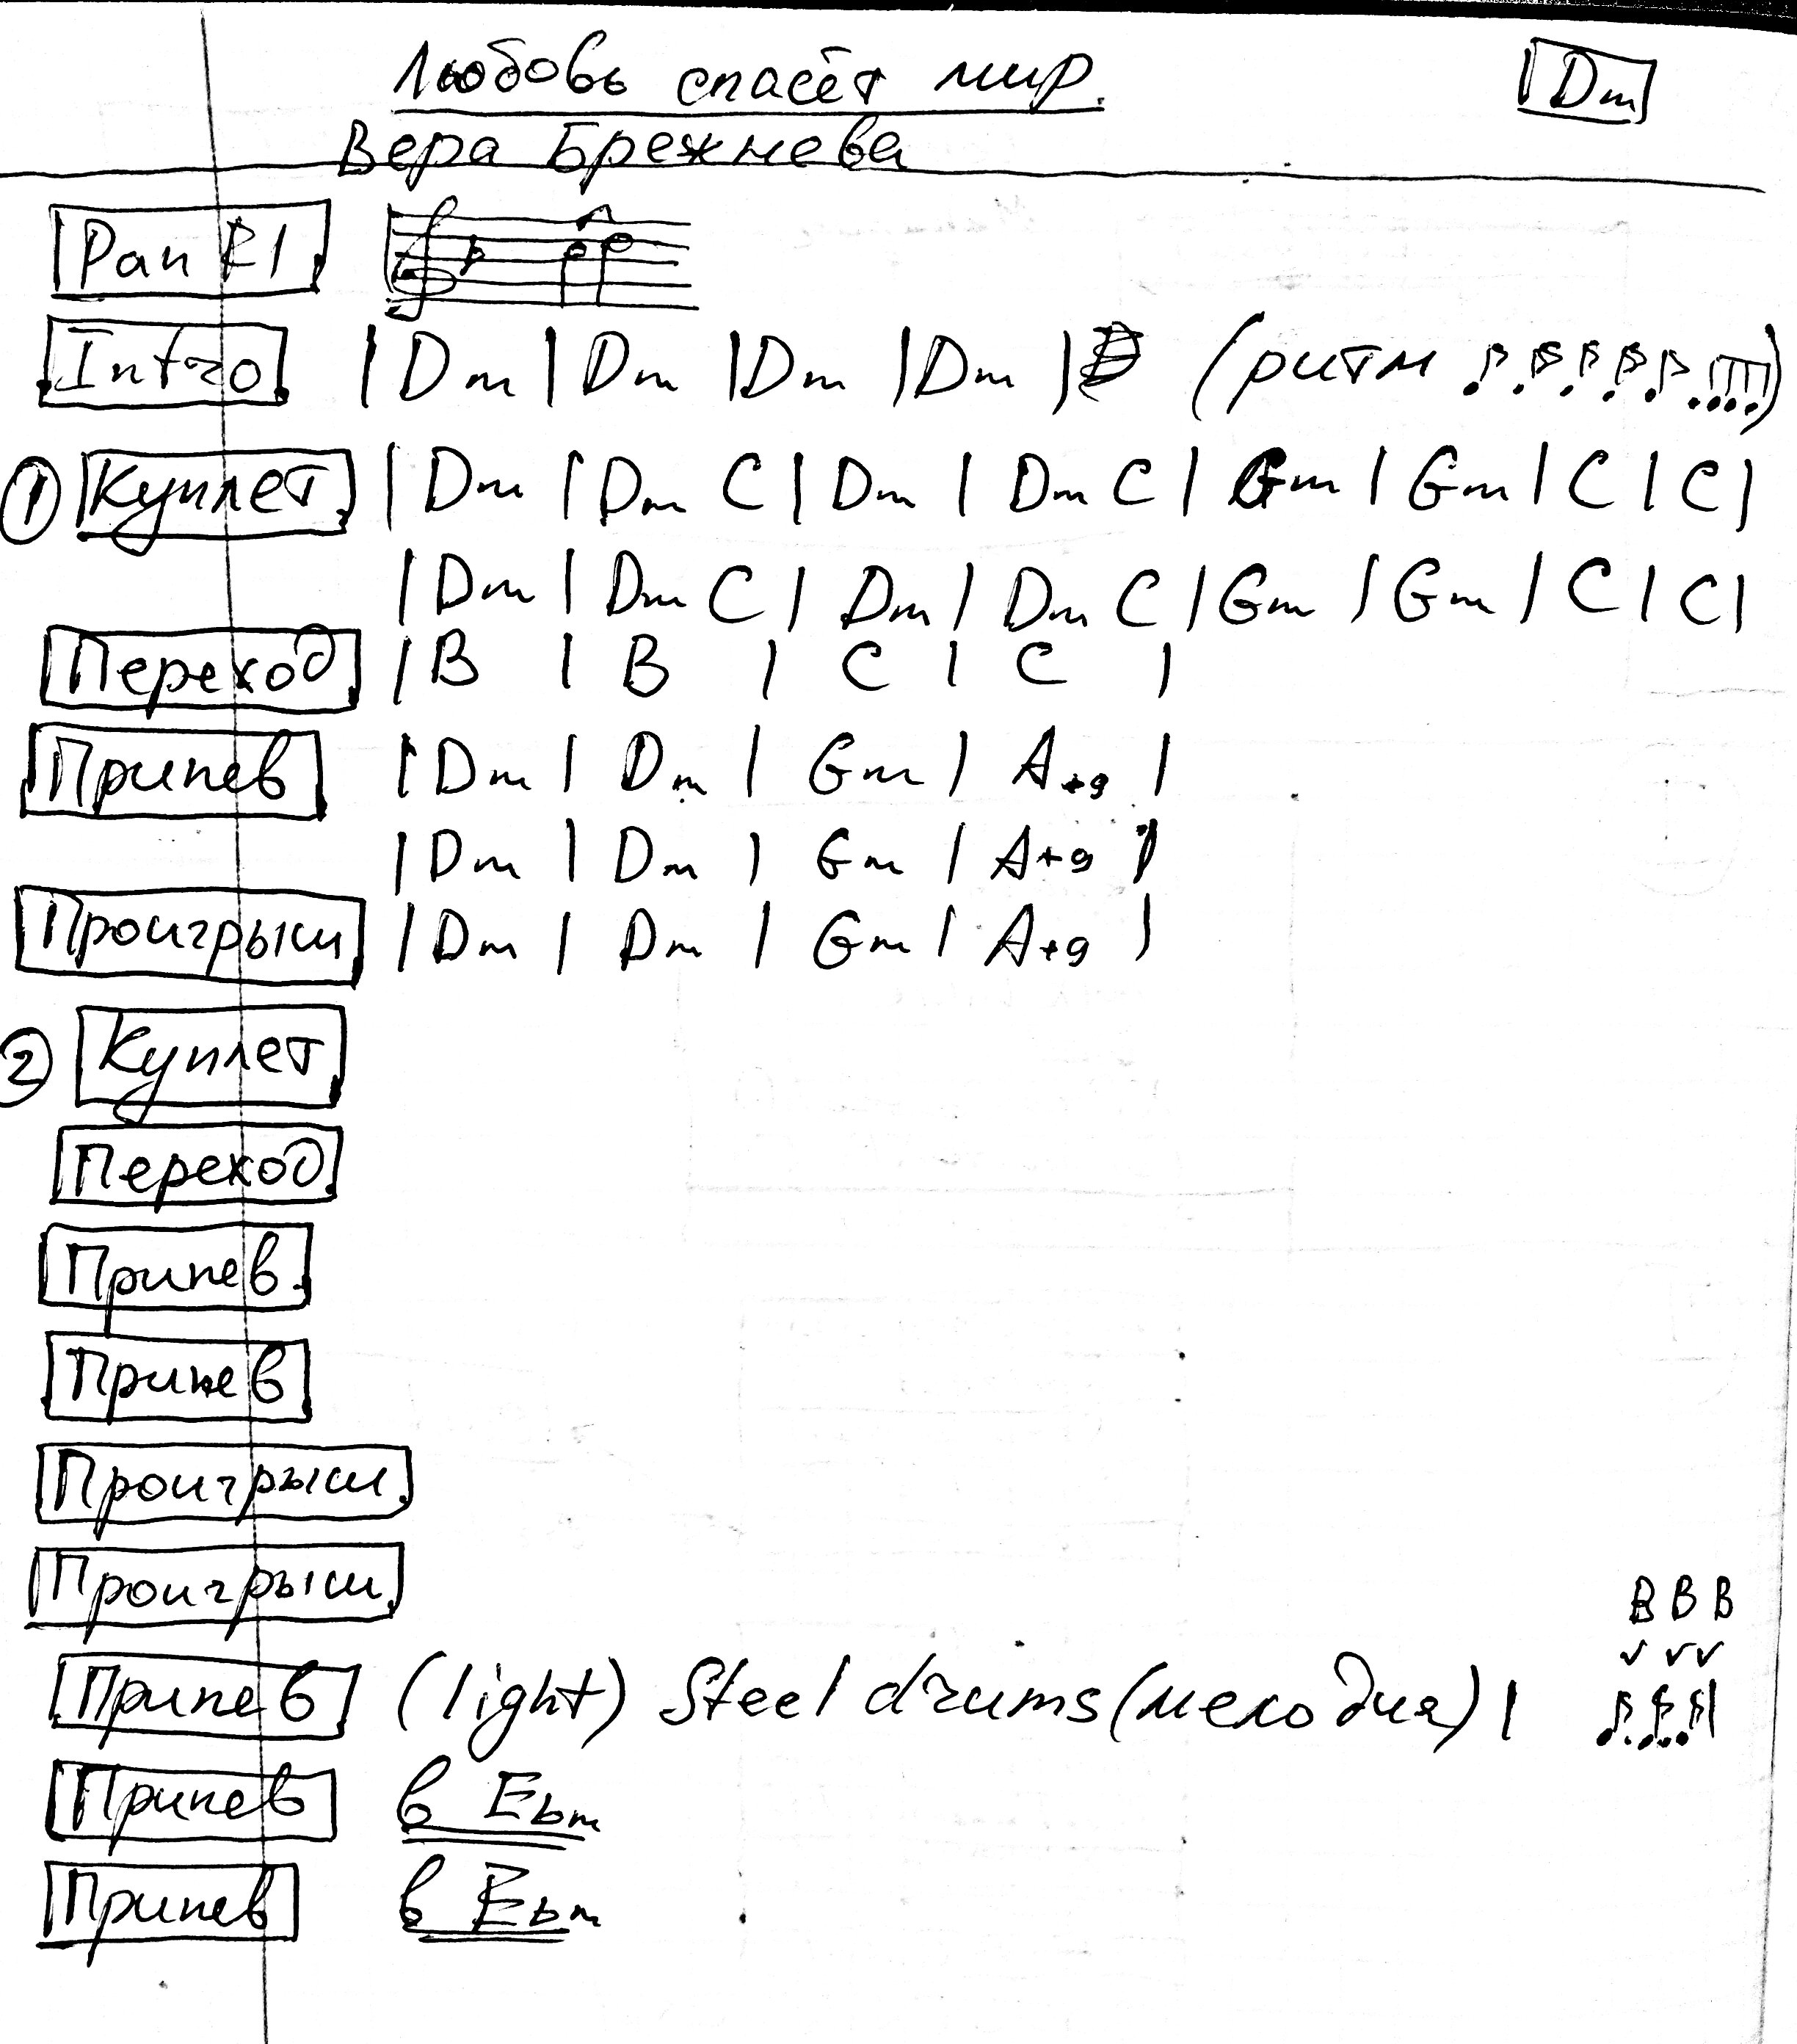 Любовь спасёт мир.
Dm
Вера Брежнева
Рап R1
Intro | Dm | Dm | Dm | Dm | (ритм )
1 Куплет | Dm | Dm C | Dm | Dm C | Gm | Gm | C | C |
| Dm | Dm C | Dm | Dm C | Gm | Gm | C | C |
Переход | B | B | C | C |
Припев | Dm | Dm | Gm | A+9 |
| Dm | Dm | Gm | A+9 |
Проигрыш | Dm | Dm | Gm | A+9 |
2 Куплет
Переход
Припев
Припев
Проигрыш
Проигрыш
B B B
Припев (light) Steel drums (мелодия) |
Припев в Ebm
Припев в Ebm